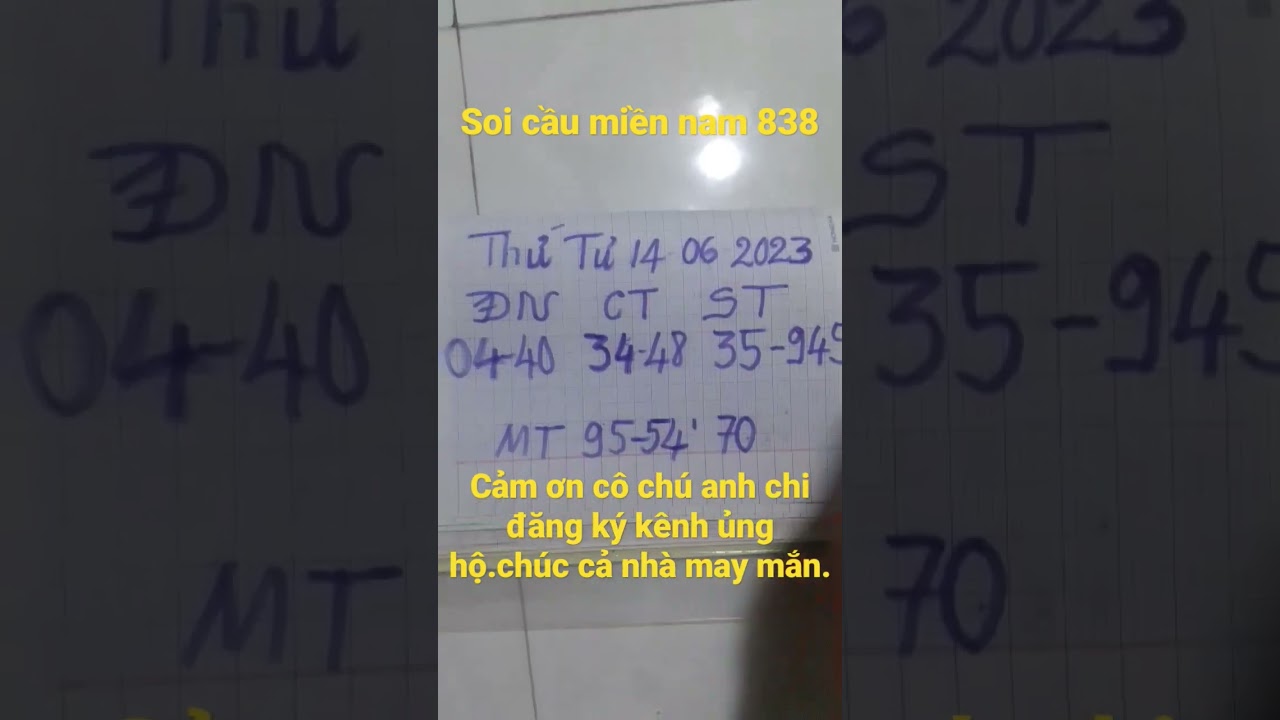 Soi cầu miền nam 838
Thứ Tư 14 06 2023
ĐN CT ST
04-40 34-48 35-945
MT 95-54' 70
Cảm ơn cô chú anh chi
đăng ký kênh ủng
hộ.chúc cả nhà may mắn.